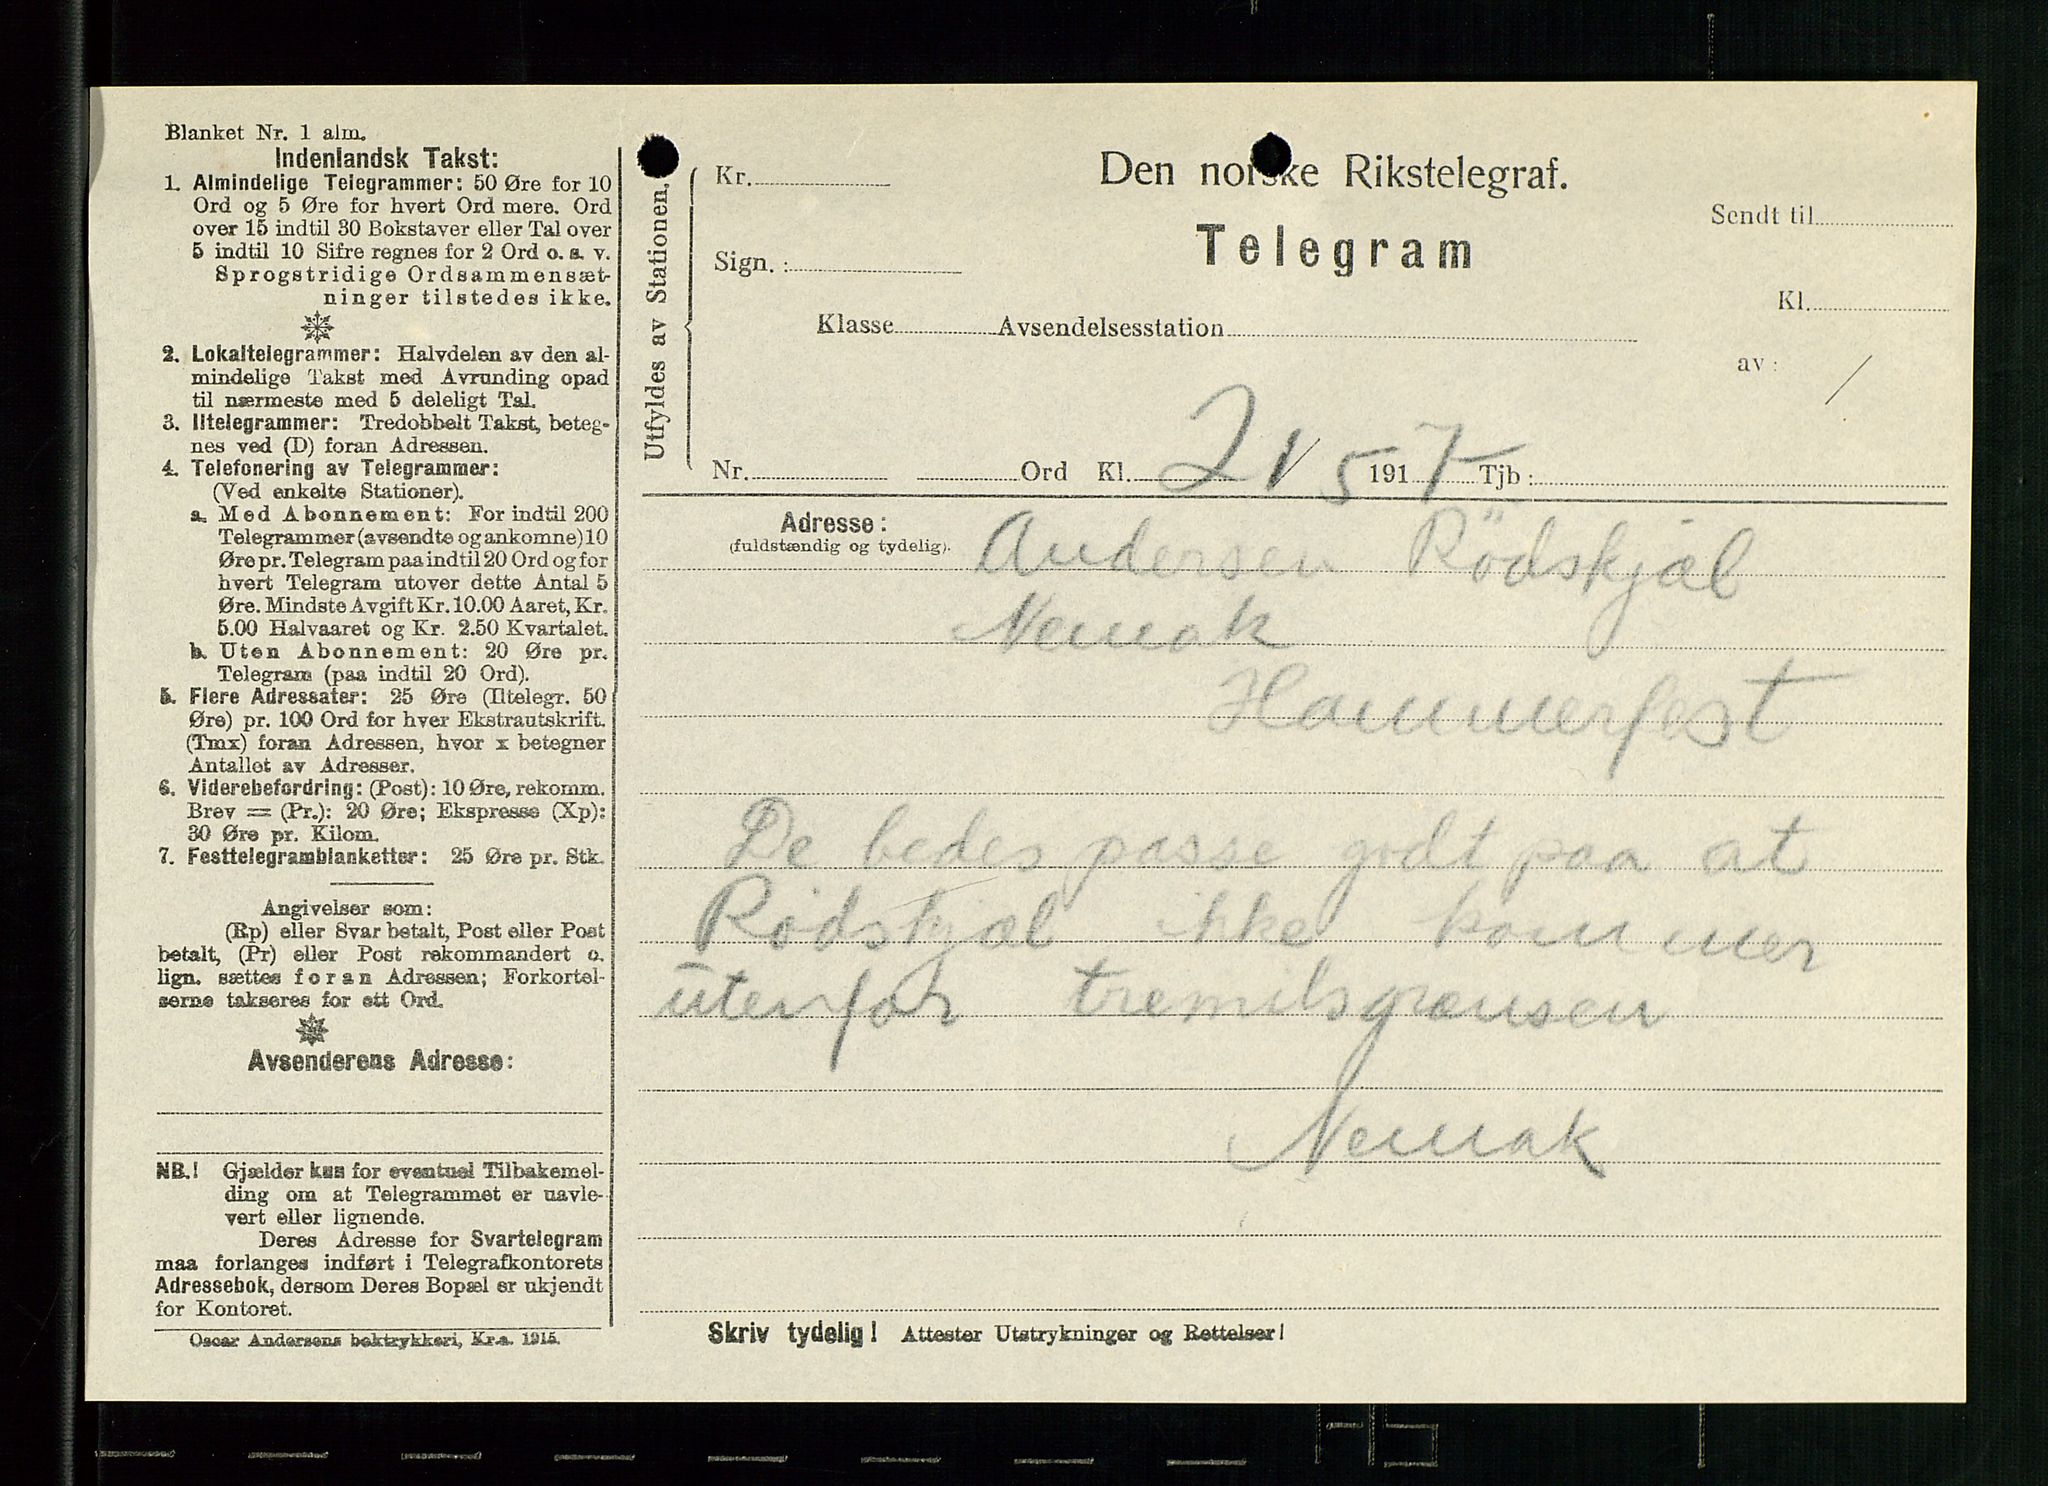 Blanket Nr. 1 alm.
Indenlandsk Takst:
1. Almindelige Telegrammer: 50 Øre for 10
Ord og 5 Øre for hvert Ord mere. Ord
over 15 indtil 30 Bokstaver eller Tal over
5 indtil 10 Sifre regnes for 2 Ord o. s. v.
Sprogstridige Ordsammensæt-
ninger tilstedes ikke.
2. Lokaltelegrammer: Halvdelen av den al-
mindelige Takst med Avrunding opad
til nærmeste med 5 deleligt Tal.
3. Iltelegrammer: Tredobbelt Takst, beteg-
nes ved (D) foran Adressen.
4. Telefonering av Telegrammer:
(Ved enkelte Stationer).
a. Med Abonnement: For indtil 200
Telegrammer (avsendte og ankomne) 10
Øre pr. Telegram paa indtil 20 Ord og for
hvert Telegram utover dette Antal 5
Øre. Mindste Avgift Kr. 10.00 Aaret, Kr.
5.00 Halvaaret og Kr. 2.50 Kvartalet.
b. Uten Abonnement: 20 Øre pr.
Telegram (paa indtil 20 Ord).
5. Flere Adressater: 25 Øre (Iltelegr. 50
Øre) pr. 100 Ord for hver Ekstrautskrift.
(Tmx) foran Adressen, hvor x betegner
Antallet av Adresser.
6. Viderebefordring: (Post): 10 Øre, rekomm.
Brev = (Pr.): 20 Øre; Ekspresse (Xp):
30 Øre pr. Kilom.
7. Festtelegramblanketter: 25 Øre pr. Stk.
Angivelser som:
(Rp) eller Svar betalt, Post eller Post
betalt, (Pr) eller Post rekommandert o.
lign. sættes foran Adressen; Forkortel-
serne takseres for ett Ord.
Avsenderens Adresse:
NB.! Gjælder kun for eventuel Tilbakemel-
ding om at Telegrammet er uavle-
vert eller lignende.
Deres Adresse for Svartelegram
maa forlanges indført i Telegrafkontorets
Adressebok, dersom Deres Bopæl er ukjendt
for Kontoret.
Oscar Andersens boktrykkeri, Kr.a. 1915.
Utfyldes av Stationen.
Kr.
Den norske Rikstelegraf.
Sendt til
Telegram
Sign. :
Kl.
Klasse Avsendelsesstation
av : /
Nr. Ord Kl. 21/5 1917 Tjb :
Adresse: Andersen Rödskjæl
(fuldstændig og tydelig).
Nemak
Hammerfest
De bedes passe godt paa at
Rödskjæl ikke kommer
utenfor tremilsgrænsen
Nemak
Skriv tydelig! Attester Utstrykninger og Rettelser!